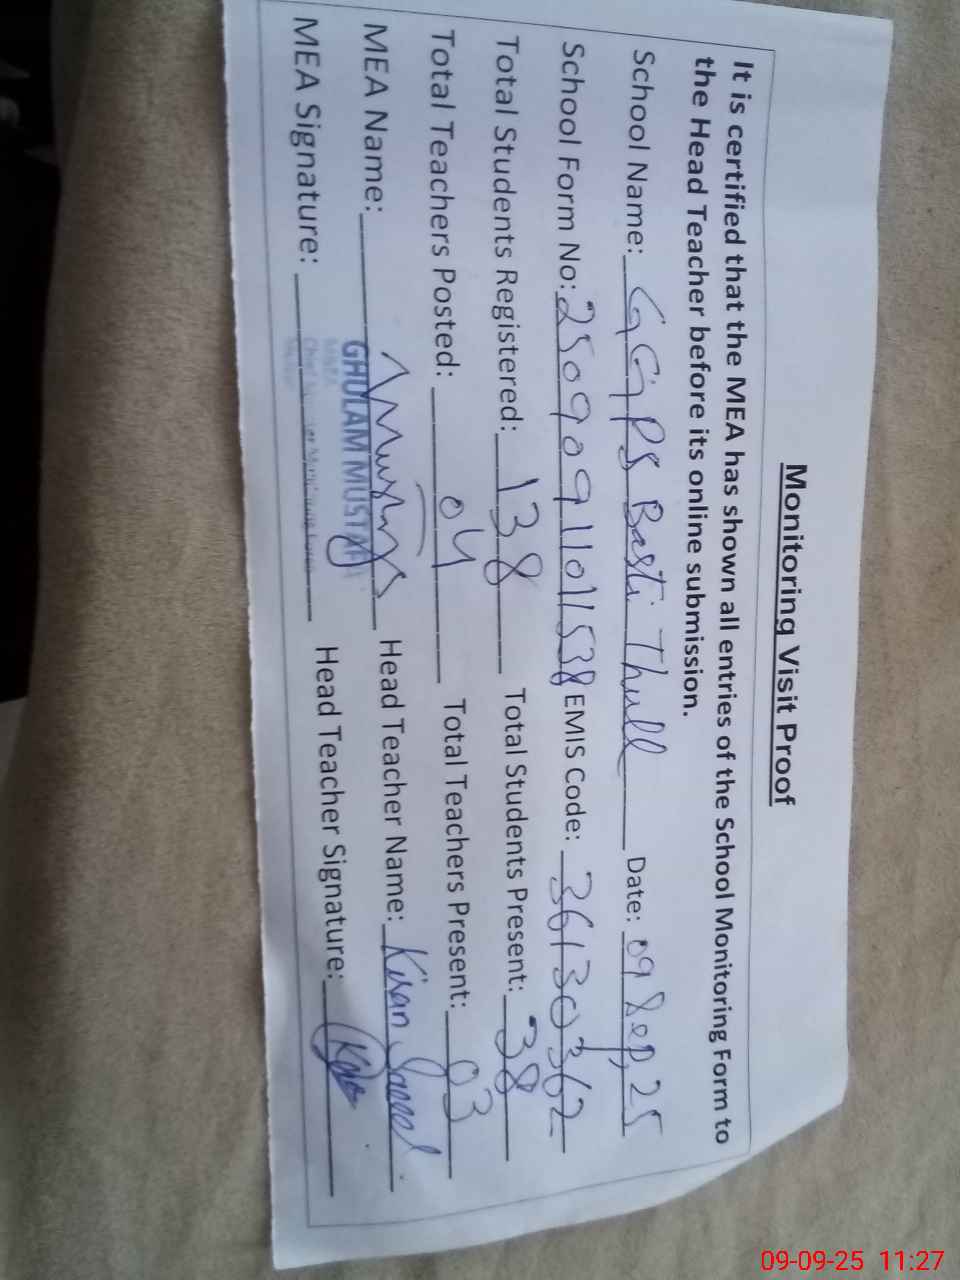 Monitoring Visit Proof
It is certified that the MEA has shown all entries of the School Monitoring Form to
the Head Teacher before its online submission.
School Name: GGPS Basti Thull Date: 09 Sep, 25
School Form No: 25090911011538 EMIS Code: 36130362
Total Students Registered: 138 Total Students Present: 38
Total Teachers Posted: 04 Total Teachers Present: 03
MEA Name: Head Teacher Name: Kiran
GHULAM MUSTAFA
MEA Signature: Head Teacher Signature:
09-09-25 11:27